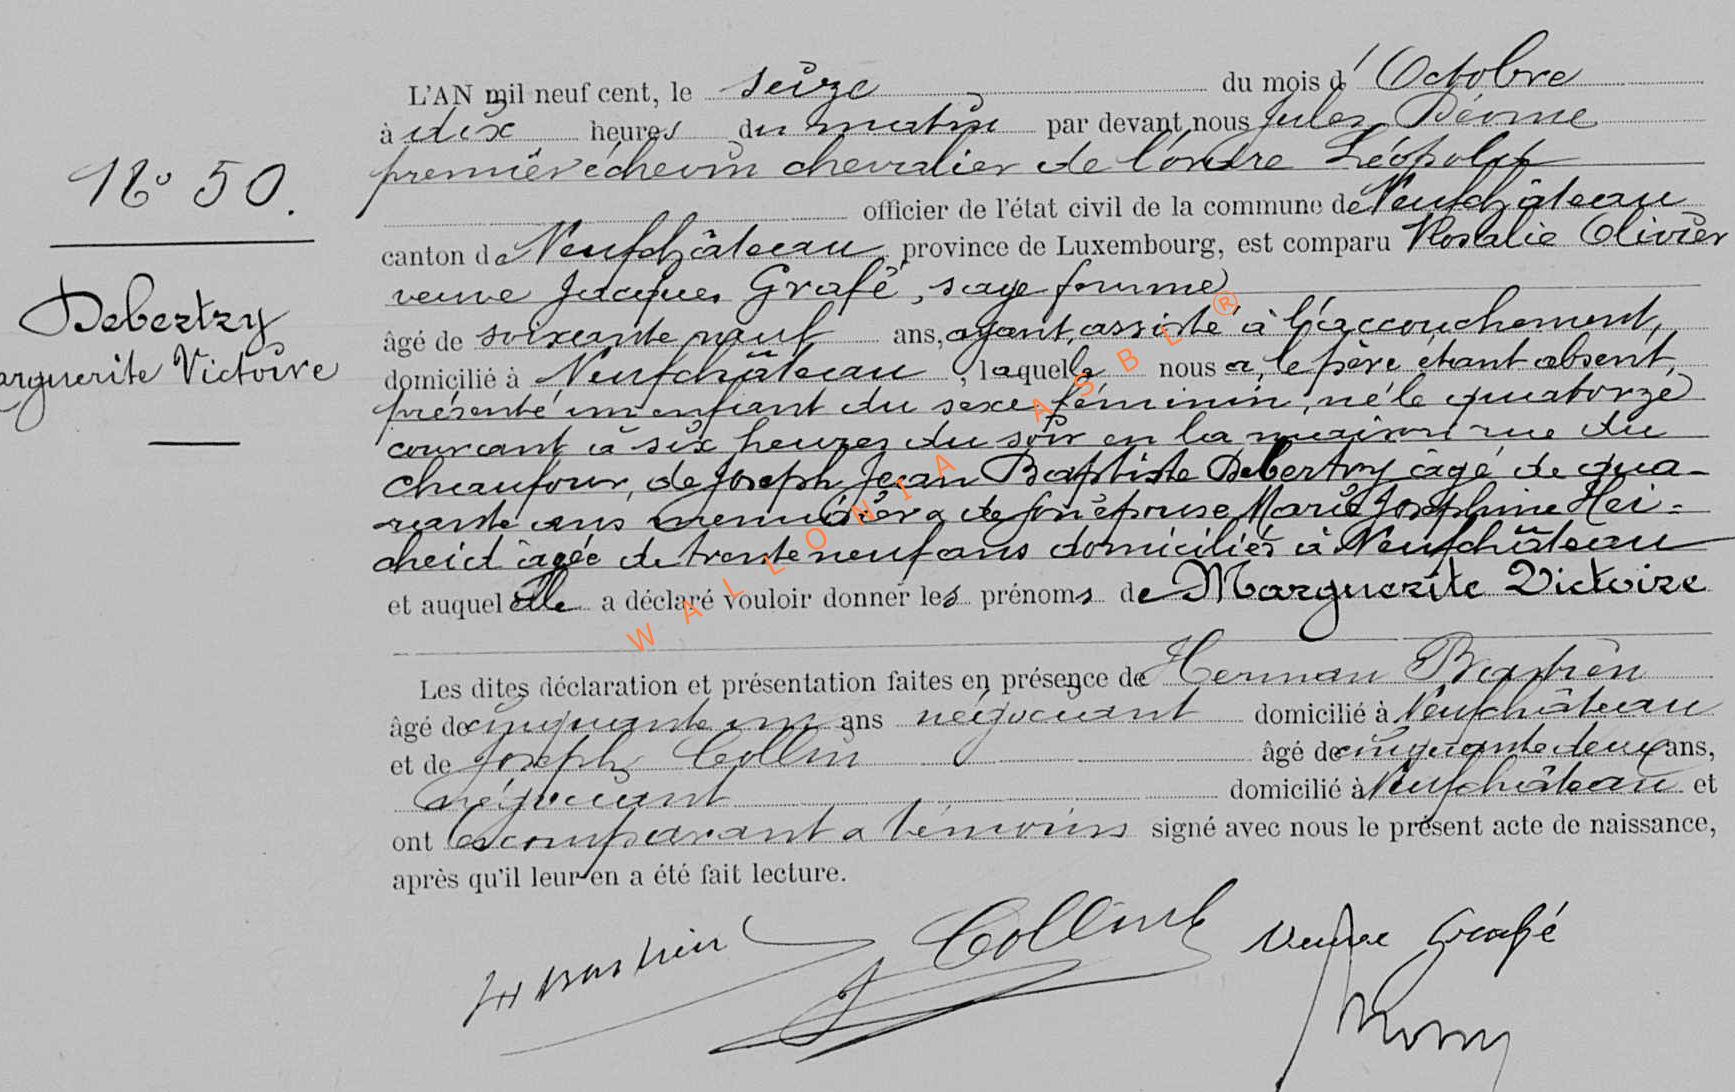 L'AN mil neuf cent, le seize du mois d'Octobre
à dix heures du matin par devant nous Jules
premier échevin chevalier de l'ordre Léopold
N° 50.
officier de l'état civil de la commune de Neufchâteau
canton de Neufchâteau province de Luxembourg, est comparu Rosalie Olivier
veuve Jacques Grafé, sage femme
Debertry
Marguerite Victoire
âgé de soixante neuf ans, ayant assisté à l'accouchement,
domicilié à Neufchâteau, laquelle nous a, le père étant absent,
présenté un enfant du sexe féminin, né le quatorze
courant à six heures du soir en la maison rue du
chaufour, de Joseph Jean Baptiste Debertry âgé de qua-
rante ans menuisier & de son épouse Marie Joséphine Hei=
cheid âgée de trente neuf ans domiciliés à Neufchâteau
et auquel elle a déclaré vouloir donner les prénoms de Marguerite Victoire
Les dites déclaration et présentation faites en présence de Herman Bastien
âgé de cinquante un ans négociant domicilié à Neufchâteau
et de Joseph Collin âgé de cinquante deux ans,
négociant domicilié à Neufchâteau et
ont les comparant & témoins signé avec nous le présent acte de naissance,
après qu'il leur en a été fait lecture.
H Bastien J Collin Veuve Grafé
WALLONIA ASBL ®